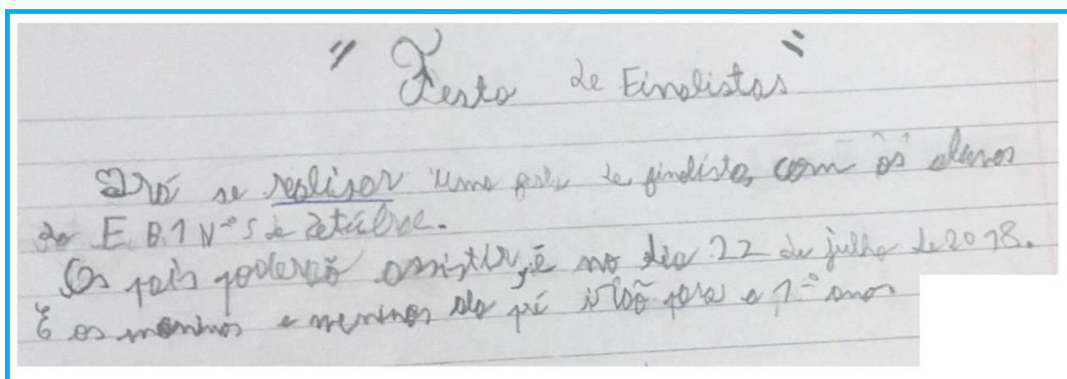 " Festa de Finalistas "
Irá se realisar uma festa de finalista, com os alunos
da E.B.1 Nº5 de
Os pais poderão assistir, é no dia 22 de julho de 2018.
E os meninos e meninas do pé irão para o 1.º anos